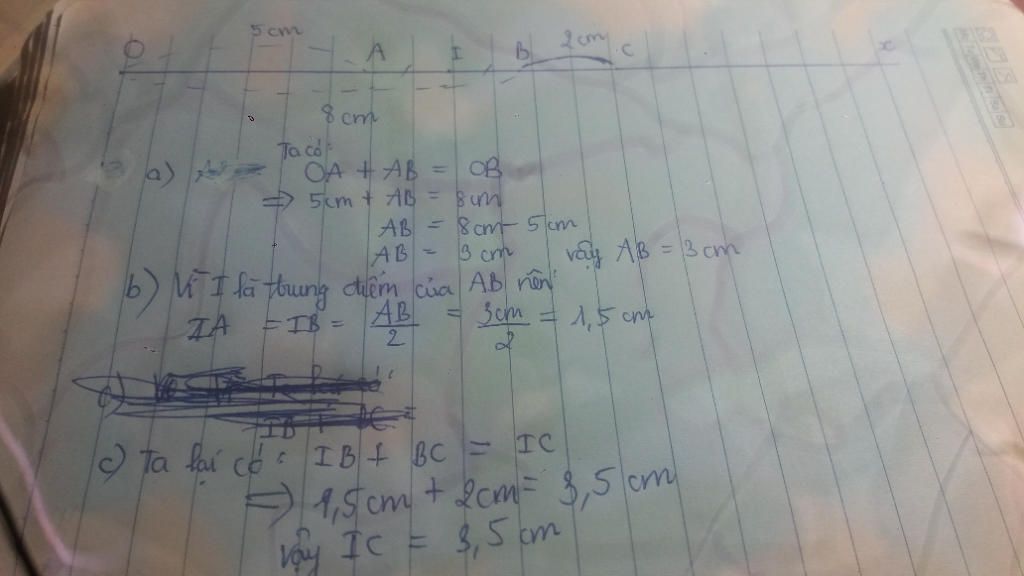 5cm
O A I B 2cm C x
8cm
Ta có:
a) OA + AB = OB
=> 5cm + AB = 8cm
AB = 8cm - 5cm
AB = 3cm vậy AB = 3cm
b) Vì I là trung điểm của AB nên
IA = IB = AB/2 = 3cm/2 = 1,5 cm
IB + BC =
c) Ta lại có: IB + BC = IC
=> 1,5cm + 2cm = 3,5 cm
vậy IC = 3,5 cm